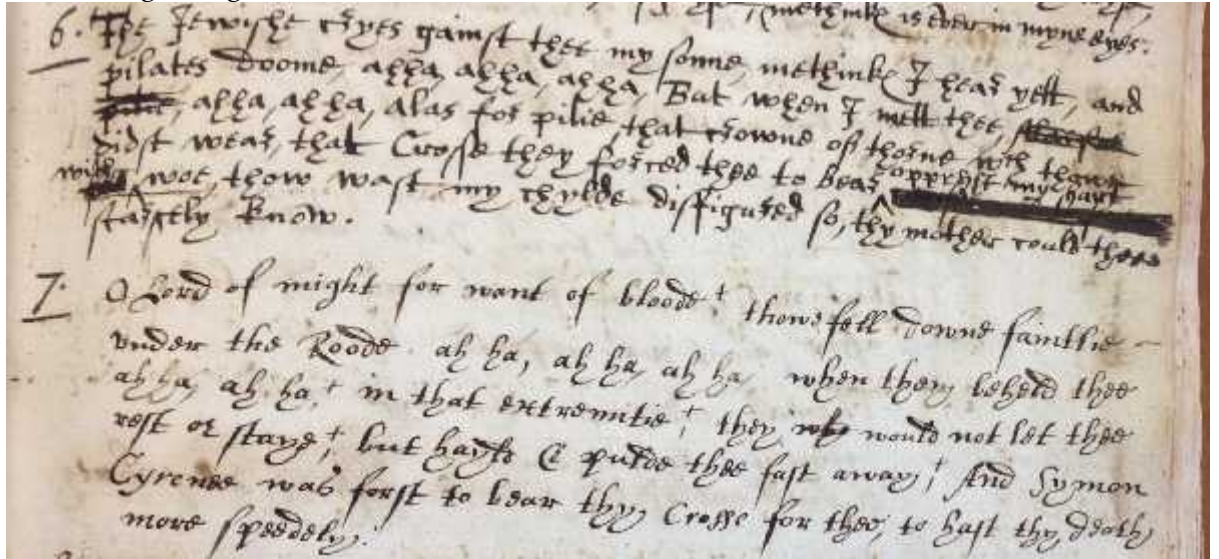 methinke is ever in myne eyes.
6. The Jewishe cryes gainst thee my sonne, methinke I hear yett, and
pilates doome, ahha, ahha, ahha, But when I mett thee,
ahha, ahha, alas for pitie, that crowne of thorne wth thow
didst wear, that Crosse they forced thee to bear opprest my hart
with woe, thow wast my chylde disfigured so, thy mother could thee
scarsely know.
7. O Lord of might for want of bloode † thowe fell downe faintlie
under the Roode. ah ha, ah ha, ah ha, when they beheld thee
ah ha, ah ha, † in that extremitie † they would not let thee
rest or staye † but & pulde thee fast away † And Symon
Cyrenee was forst to bear thy Crosse for thee, to hast thy death
more speedely.